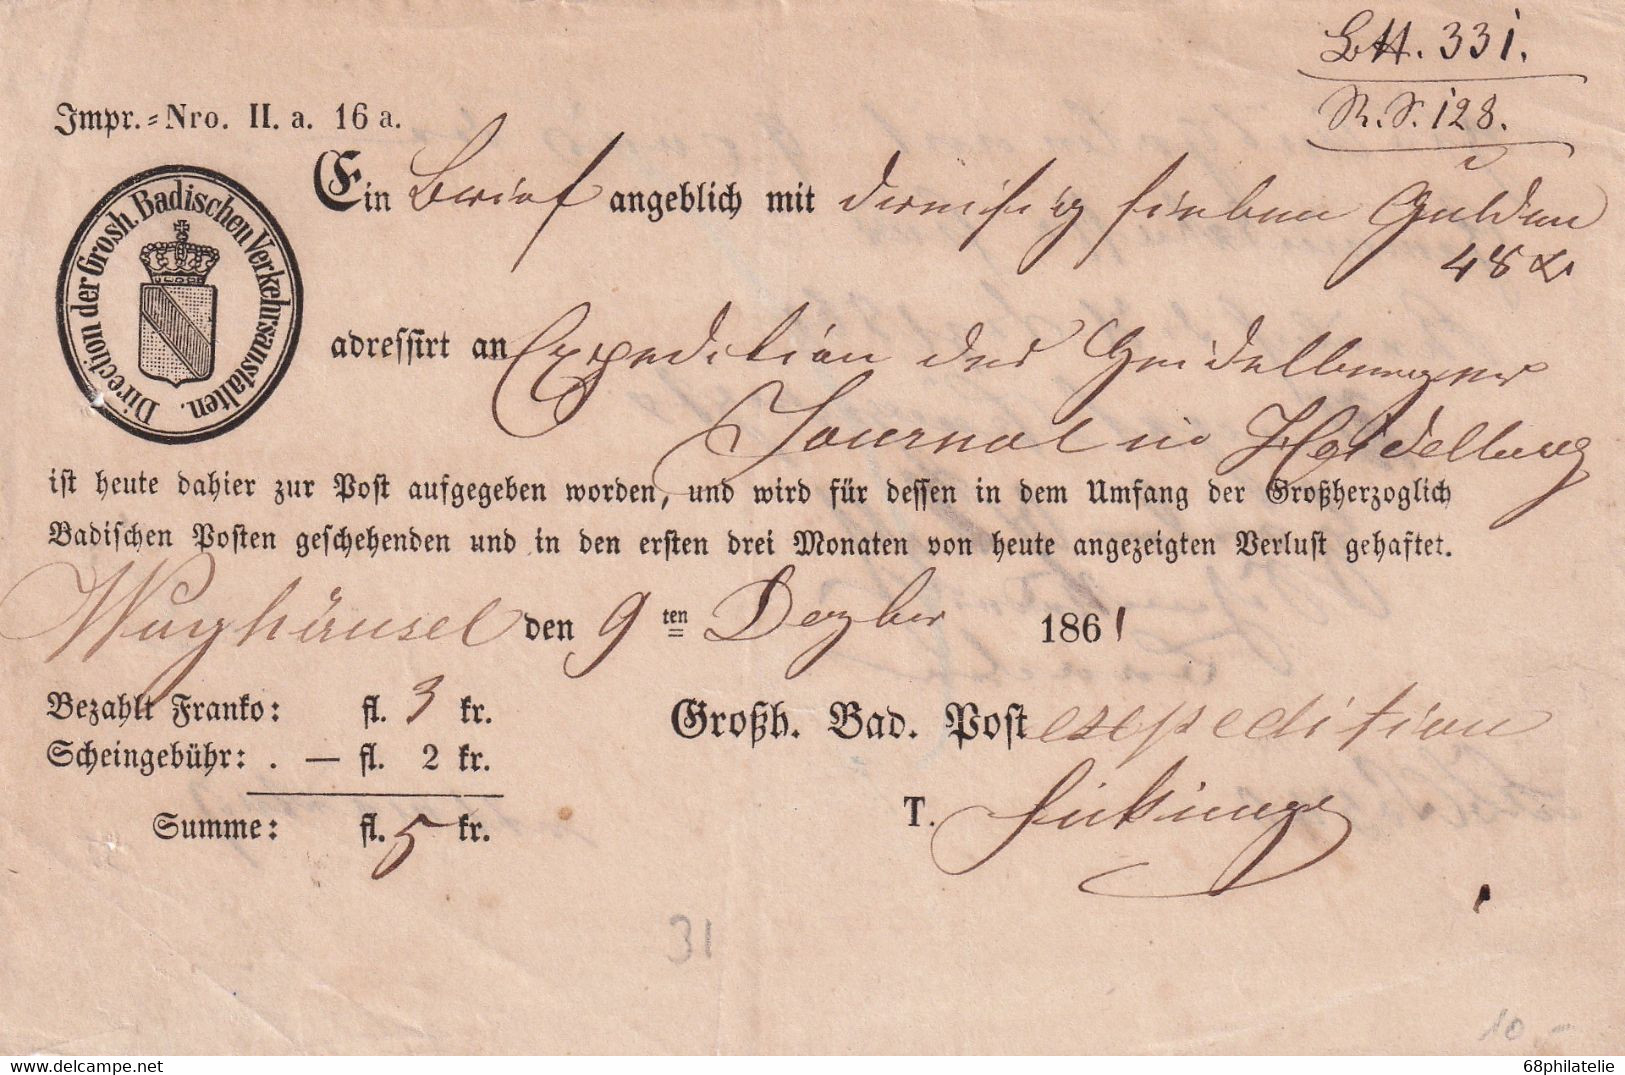 331.
R. S. 128.
Impr.=Nro. II. a. 16 a.
Direction der Grosh. Badischen Verkehrsanstalten.
Ein Brief angeblich mit dreißig sieben Gulden
48 x
adressirt an Expedition des Heidelberger
Journal in Heidelberg
ist heute dahier zur Post aufgegeben worden, und wird für dessen in dem Umfang der Großherzoglich
Badischen Posten geschehenden und in den ersten drei Monaten von heute angezeigten Verlust gehaftet.
Waghäusel den 9 ten Dezbr 1861
Bezahlt Franko: fl. 3 kr.
Großh. Bad. Postexpedition
Scheingebühr: . — fl. 2 kr.
T.
Summe: fl. 5 kr.
31
10 -
68philatelie © www.delcampe.net